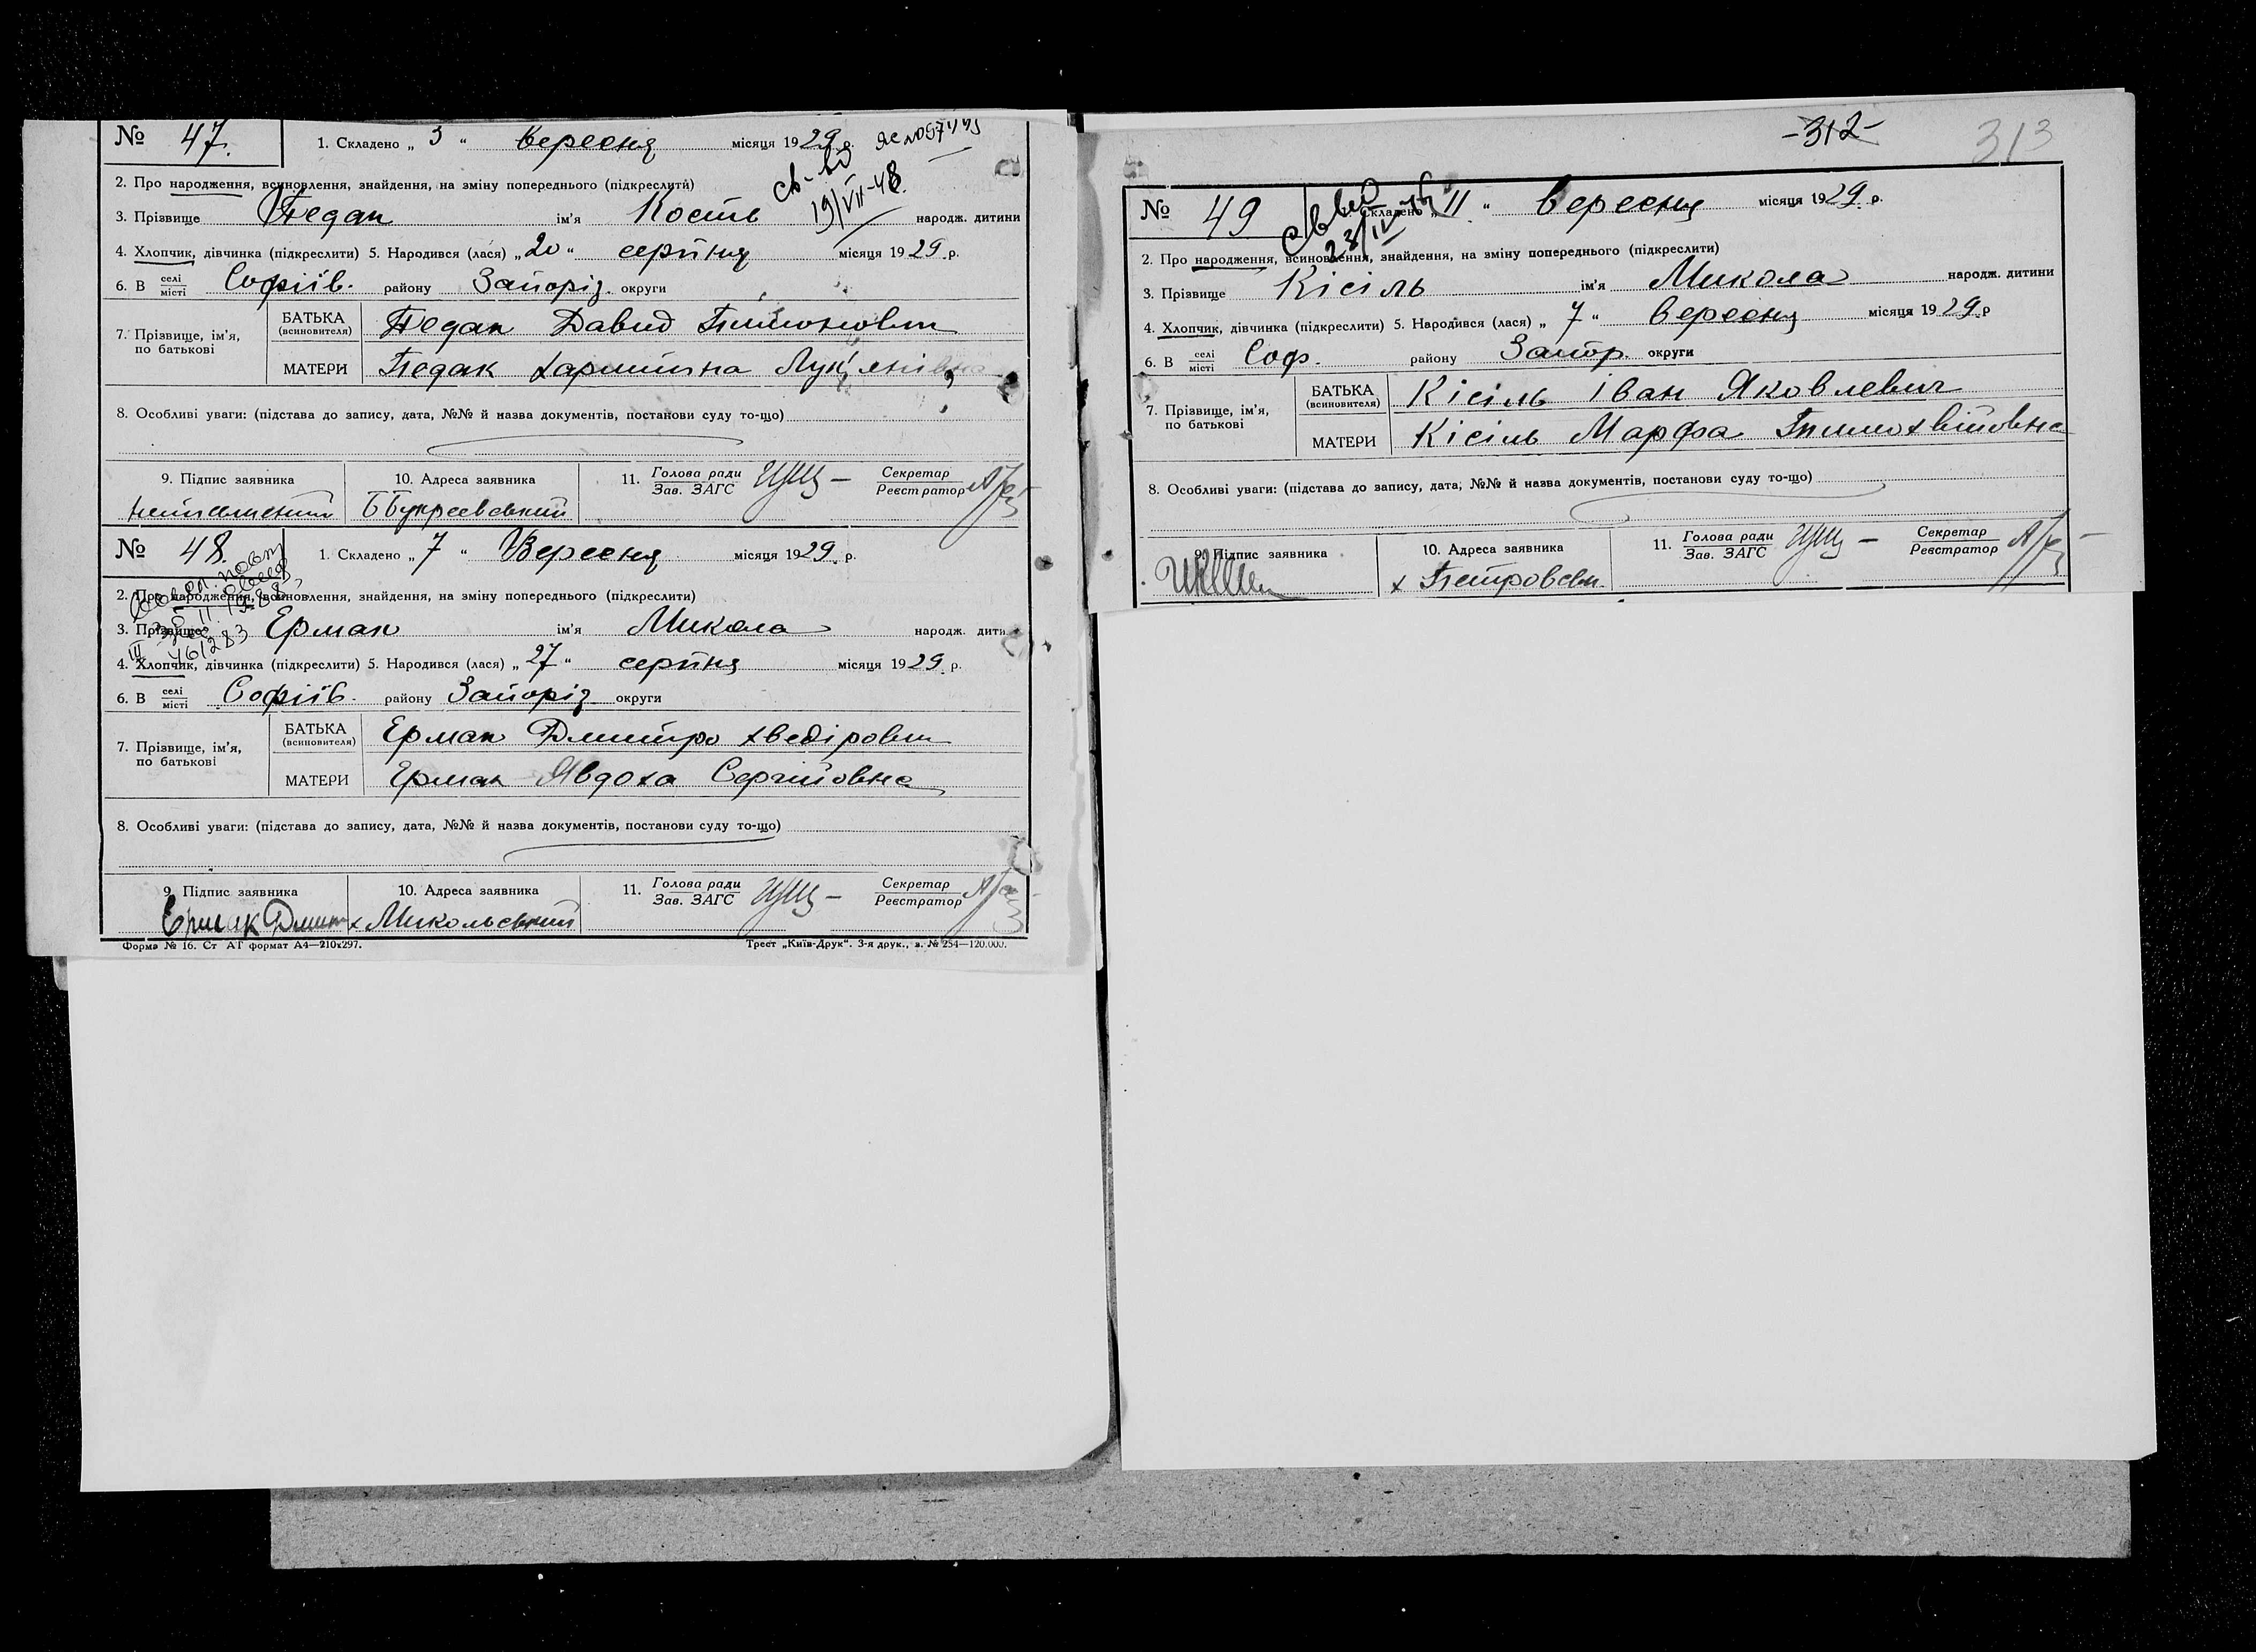 № 47. 1. Складено „ 3 “ вересня місяця 1929 р.
св-во
19/VII-48.
2. Про народження, всиновлення, знайдення, на зміну попереднього (підкреслити)
3. Прізвище Педак ім'я Кость народж. дитини
4. Хлопчик, дівчинка (підкреслити) 5. Народився (лася) „ 20 “ серпня місяця 1929 р.
6. В селі місті Софіїв. району Запоріз. округи
7. Прізвище, ім'я, по батькові
БАТЬКА (всиновителя) Педак Давид
МАТЕРИ Педак Лук'янівна
8. Особливі уваги: (підстава до запису, дата, №№ й назва документів, постанови суду то-що)
9. Підпис заявника
10. Адреса заявника
11. Голова ради Зав. ЗАГС
Секретар Реєстратор
неписьменний
№ 48. 1. Складено „ 7 “ Вересня місяця 1929 р.
2. Про народження, всиновлення, знайдення, на зміну попереднього (підкреслити)
3. Прізвище Ермак ім'я Микола народж. дити
461283
4. Хлопчик, дівчинка (підкреслити) 5. Народився (лася) „ 27 “ серпня місяця 1929 р.
6. В селі місті Софіїв. району Запоріз. округи
7. Прізвище, ім'я, по батькові
БАТЬКА (всиновителя) Ермак Дмитро Хведірович
МАТЕРИ Ермак Явдоха Сергійовна
8. Особливі уваги: (підстава до запису, дата, №№ й назва документів, постанови суду то-що)
9. Підпис заявника
10. Адреса заявника
11. Голова ради Зав. ЗАГС
Секретар Реєстратор
Ермак Дмит х Микольський
Форма № 16. Ст АГ формат А4—210х297.
Трест „Київ-Друк“. 3-я друк., з. № 254—120.000.
-312-
313
№ 49 Складено „ 11 “ вересня місяця 1929 р.
2. Про народження, всиновлення, знайдення, на зміну попереднього (підкреслити)
3. Прізвище Кісіль ім'я Микола народж. дитини
4. Хлопчик, дівчинка (підкреслити) 5. Народився (лася) „ 7 “ вересня місяця 1929 р
6. В селі місті Соф. району Запор. округи
7. Прізвище, ім'я, по батькові
БАТЬКА (всиновителя) Кісіль Іван Яковлевич
МАТЕРИ Кісіль Марфа Тимохвійовна
8. Особливі уваги: (підстава до запису, дата, №№ й назва документів, постанови суду то-що)
9. Підпис заявника
10. Адреса заявника
11. Голова ради Зав. ЗАГС
Секретар Реєстратор
х Петровськ.